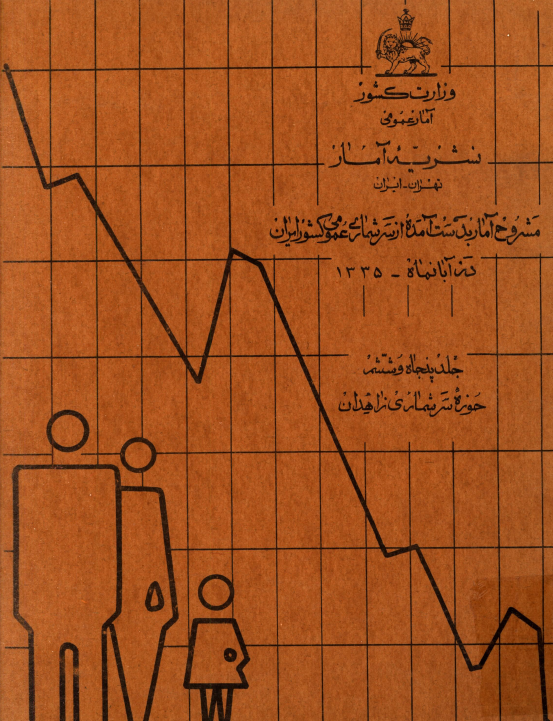 وزارت کشور
آمار عمومی
نشریه آمار
تهران - ایران
مشروح آمار بدست آمده از سرشماری عمومی کشور ایران
در آبانماه - ۱۳۳۵
جلد پنجاه و ششم
حوزه سرشماری زاهدان